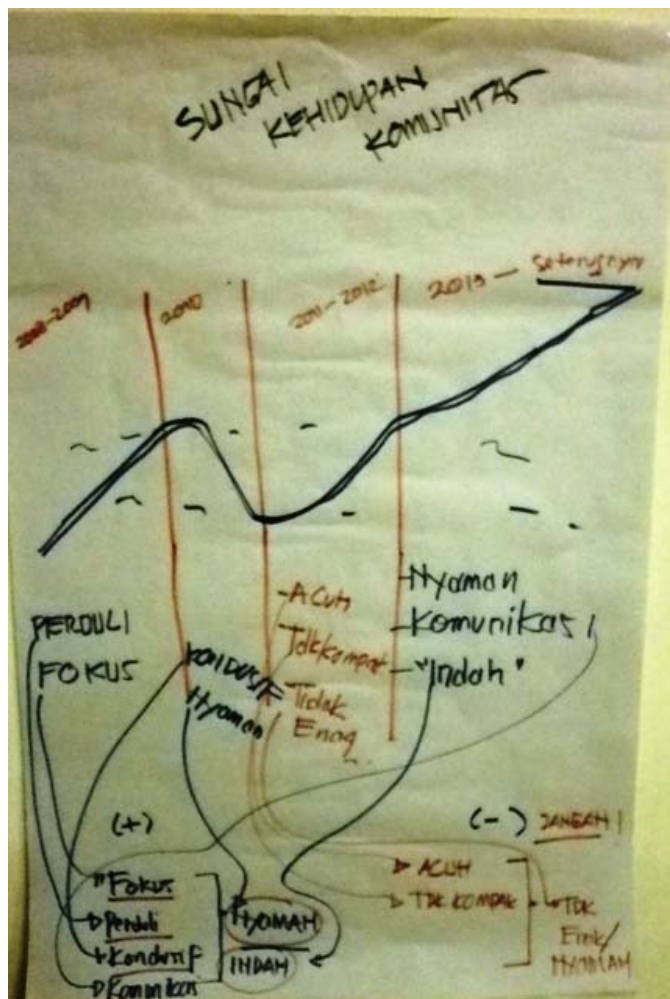 SUNGAI
KEHIDUPAN
KOMUNITAS
2008-2009
2010
2011-2012
2013 - Seterusnya
PERDULI
FOKUS
KONDUSIF
Nyaman
- ACUH
Tdk kompak
Tidak
Enaq
- Nyaman
- Komunikasi
- "Indah"
(+)
Fokus
Perduli
Kondusif
Komunikasi
NYAMAN
INDAH
(-) JANGAN!
ACUH
TDK KOMPAK
TDK
NYAMAN